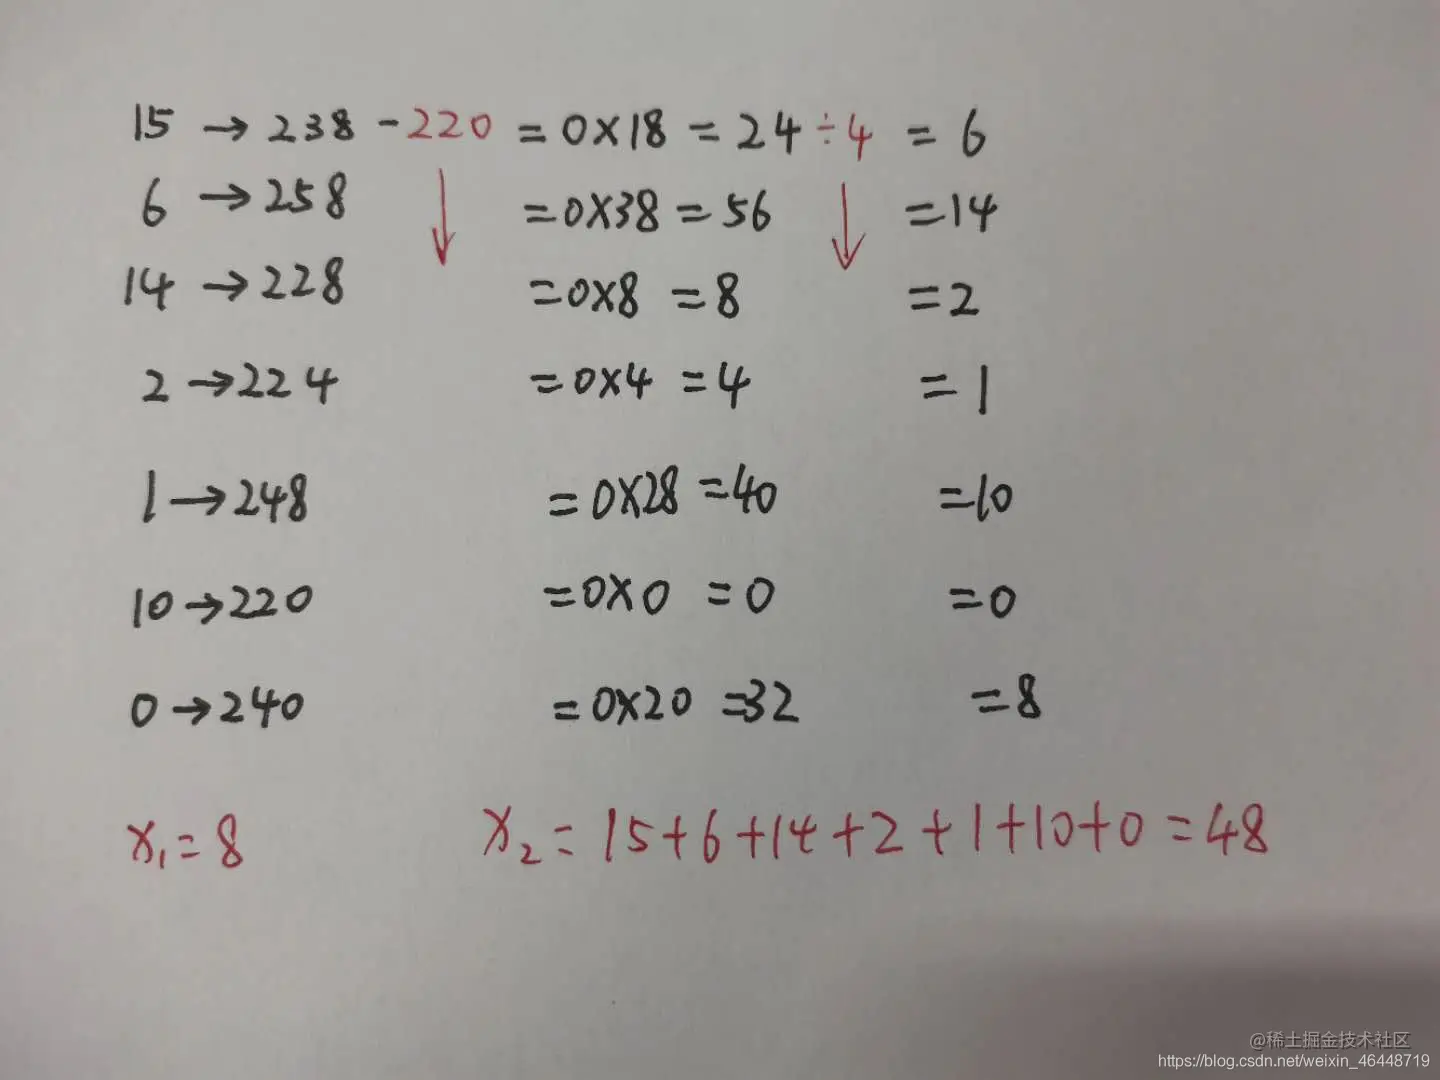 15 → 238 - 220 = 0x18 = 24 ÷ 4 = 6
6 → 258 = 0x38 = 56 = 14
14 → 228 = 0x8 = 8 = 2
2 → 224 = 0x4 = 4 = 1
1 → 248 = 0x28 = 40 = 10
10 → 220 = 0x0 = 0 = 0
0 → 240 = 0x20 = 32 = 8
x₁ = 8 x₂ = 15+6+14+2+1+10+0 = 48
@稀土掘金技术社区
https://blog.csdn.net/weixin_46448719